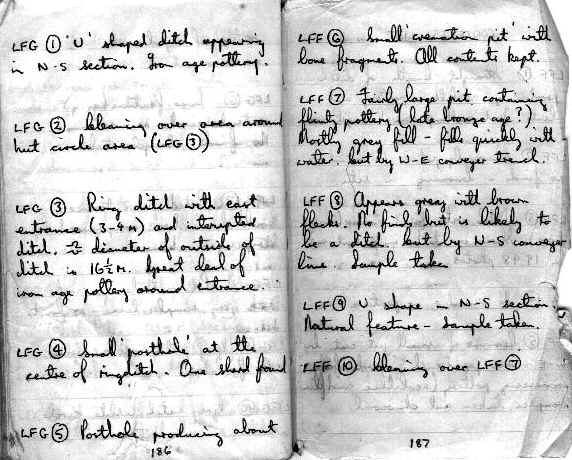 LFG ① 'U' shaped ditch appearing
in N-S section. Iron age pottery.
LFG ② Cleaning over area around
hut circle area (LFG ③)
LFG ③ Ring ditch with east
entrance (3-4 M) and interupted
ditch. diameter of outside of
ditch is 16½ M. Great deal of
iron age pottery around entrance.
LFG ④ Small 'posthole' at the
centre of ringditch. One sherd found
LFG ⑤ Posthole producing about
186
LFF ⑥ Small 'cremation pit' with
bone fragments. All contents kept.
LFF ⑦ Fairly large pit containing
flint, pottery (late bronze age?)
Mostly grey fill - fills quickly with
water. Cut by W-E conveyer trench.
LFF ⑧ Appears grey with brown
flecks. No finds but is likely to
be a ditch. Cut by N-S conveyer
line. Sample taken
LFF ⑨ U shape in N-S section
Natural feature - sample taken.
LFF ⑩ Cleaning over LFF ⑦
187